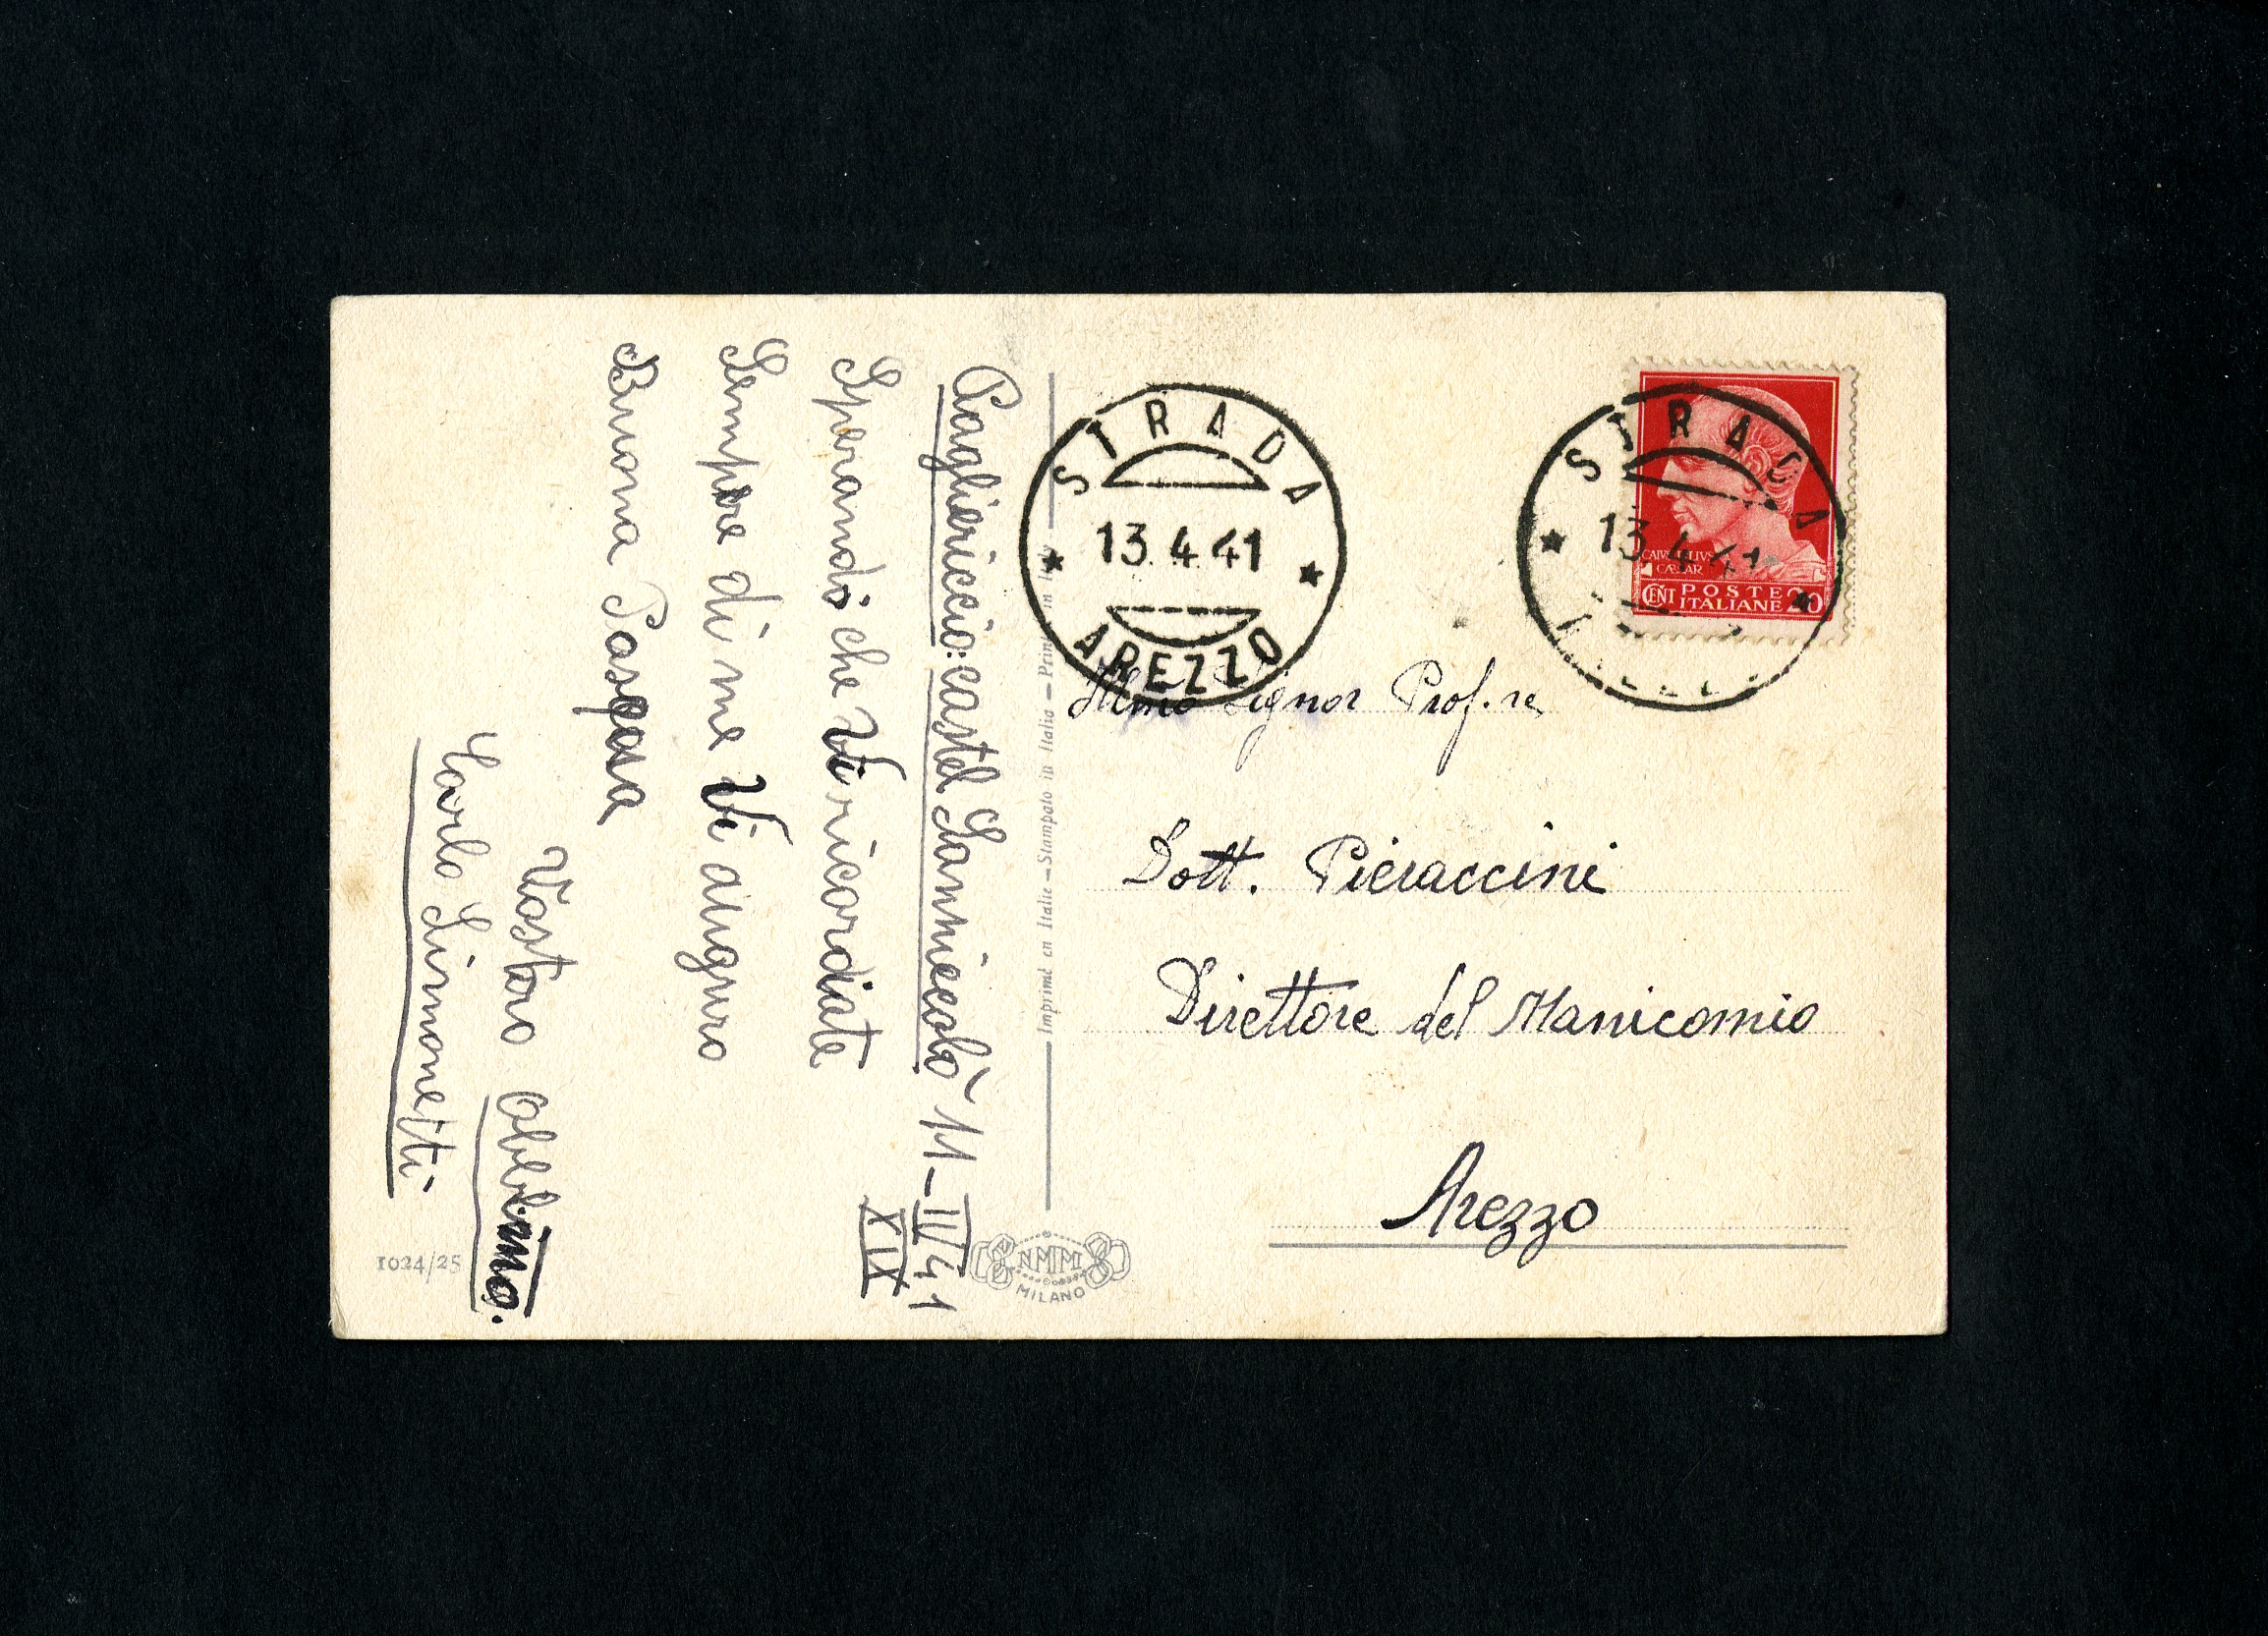 Pagliericcio: castel Sanniccolò 11-II/41
XIX
Sperando che Vi ricordiate
Sempre di me Vi auguro
Buona Pasqua
Vostro obbl.imo.
Carlo Simonetti
1024/25
Imprimé en Italie - Stampato in Italia - Prin in
NMM
MILANO
STRADA
13.4.41
AREZZO
STRADA
13.4.41
CAIVS IVLIVS
CÆSAR
CENT POSTE ITALIANE 20
Ill.mo Signor Prof.re
Dott. Pieraccini
Direttore del Manicomio
Arezzo